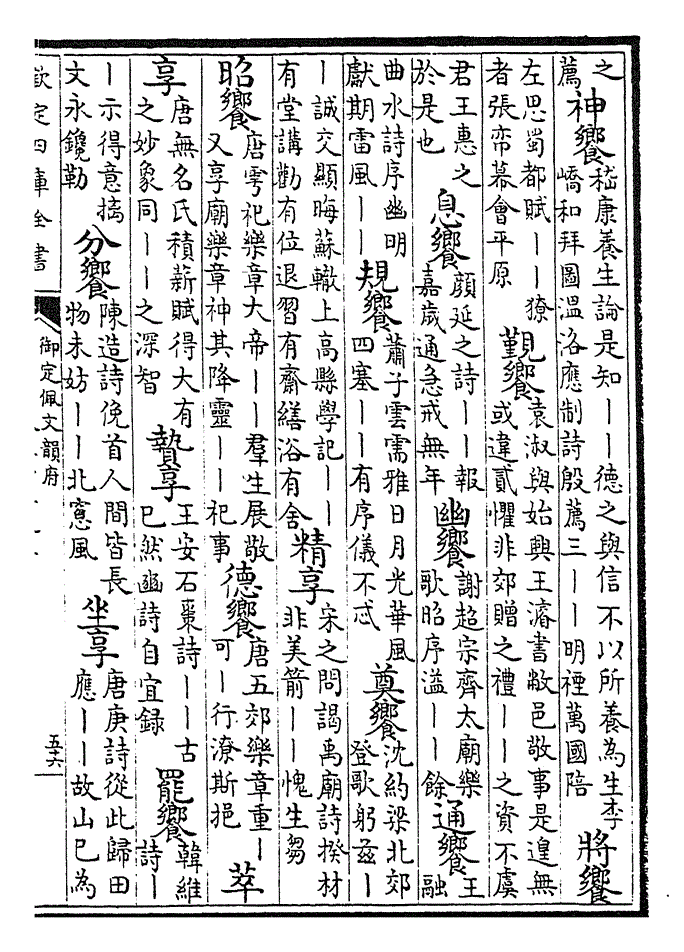 之
薦
神饗
嵇康養生論是知——德之與信不以所養為生李
嶠和拜圖溫洛應制詩殷薦三——明禋萬國陪
將饗
左思蜀都賦——獠
者張帟幕會平原
覲饗
袁淑與始興王濬書敝邑敬事是遑無
或違貳懼非郊贈之禮——之資不虞
君王惠之
於是也
息饗
顏延之詩——報
嘉歲通急戒無年
幽饗
謝超宗齊太廟樂
歌昭序溢——餘
通饗
王
融
曲水詩序幽明
獻期雷風——
規饗
蕭子雲需雅日月光華風
四塞——有序儀不忒
奠饗
沈約梁北郊
登歌躬茲—
—誠交顯晦蘇轍上高縣學記——
有堂講勸有位退習有齋繕浴有舍
精享
宋之問謁禹廟詩揆材
非美箭——愧生芻
昭饗
唐雩祀樂章大帝——羣生展敬
又享廟樂章神其降靈——祀事
德饗
唐五郊樂章重—
可—行潦斯挹
萃
享
唐無名氏積薪賦得大有
之妙象同——之深智
贄享
王安石棗詩——古
已然豳詩自宜錄
罷饗
韓維
詩—
—示得意摛
文永鑱勒
分饗
陳造詩俛首人間皆長
物未妨——北窻風
坐享
唐庚詩從此歸田
應——故山已為
欽定四庫全書
御定佩文韻府